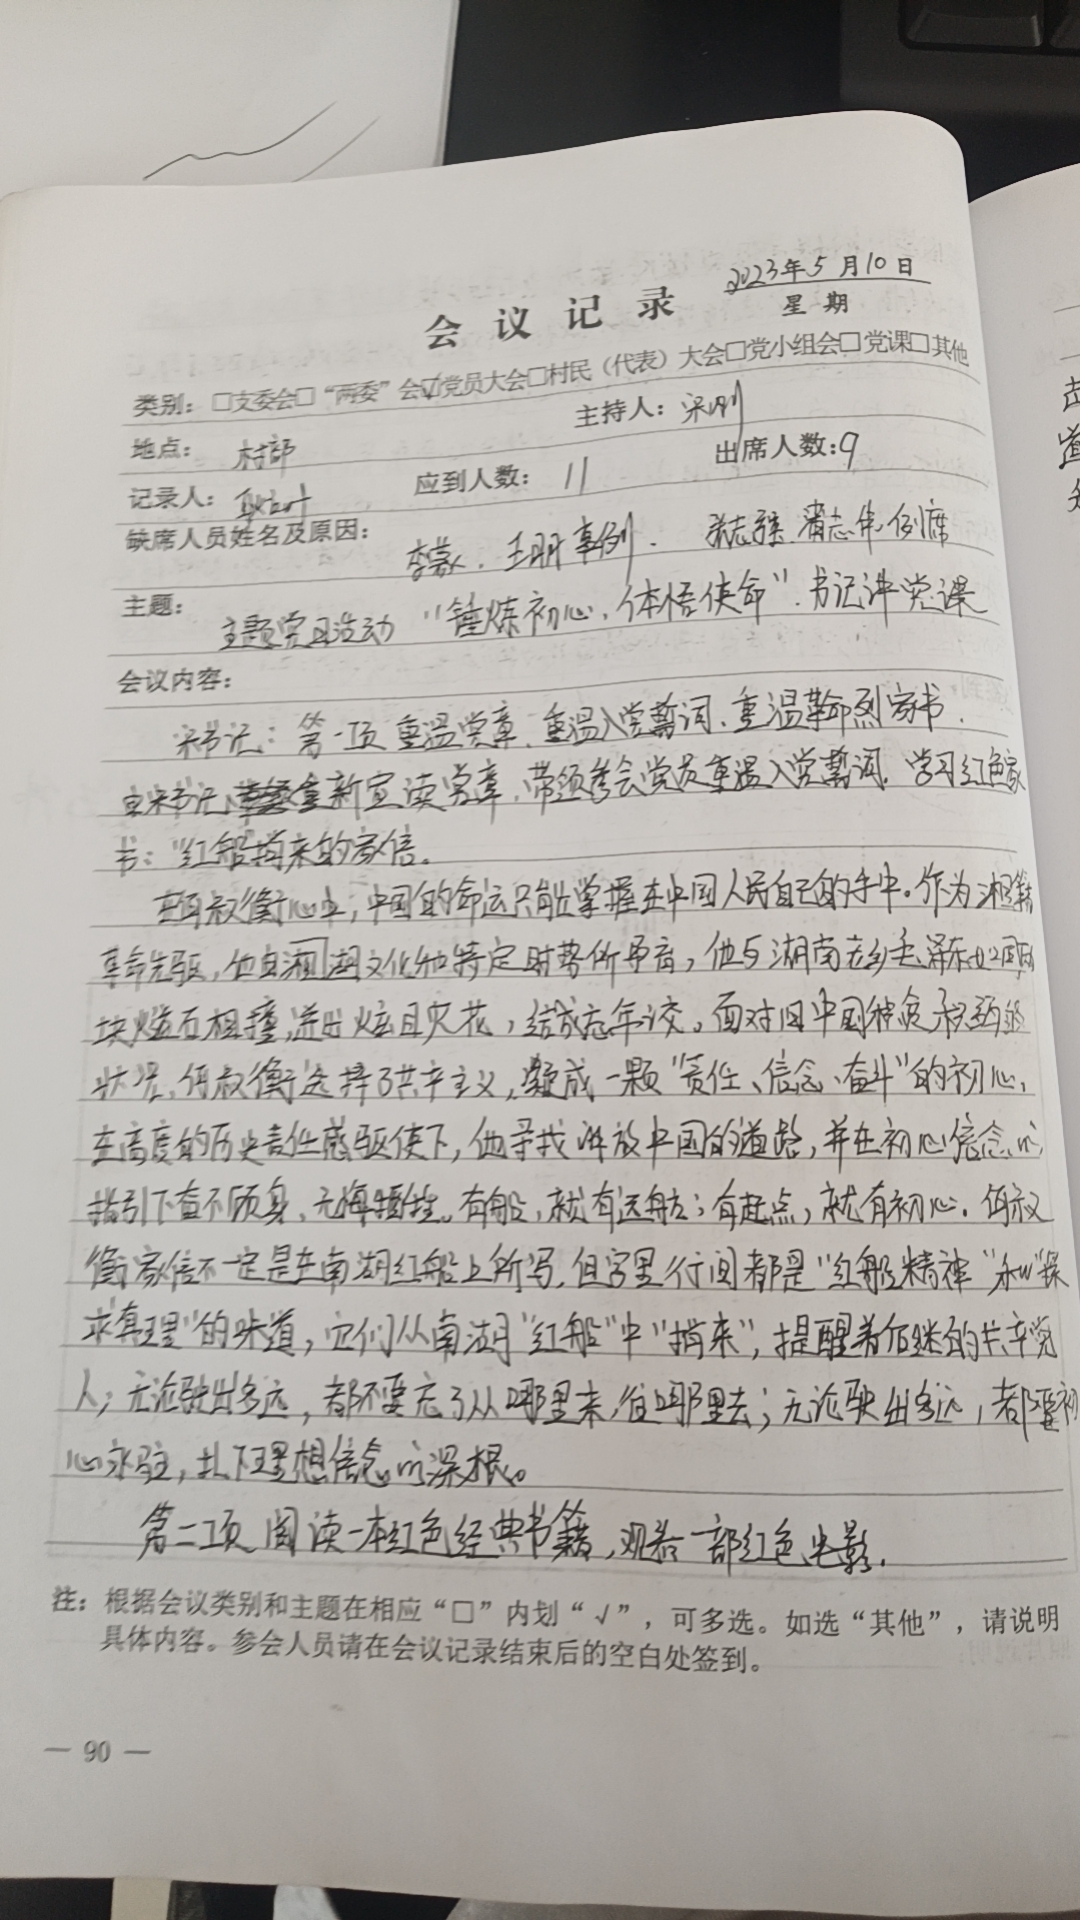 2023年5月10日
会议记录 星期
类别：□支委会□“两委”会☑党员大会□村民（代表）大会□党小组会□党课□其他
地点： 村部 主持人：宋刚
记录人： 应到人数： 11 出席人数：9
缺席人员姓名及原因： 李 、王 事假、 张志 志 例席
主题： 主题党日活动“锤炼初心，体悟使命”．书记讲党课
会议内容：
宋书记：第一项 重温党章、重温入党誓词、重温革命烈家书．
由宋书记 重新宣读党章，带领参会党员重温入党誓词，学习红色家
书：“红船”捎来的家信。
在何叔衡心中，中国的命运只能掌握在中国人民自己的手中。作为湘籍
革命先驱，他由湖湘文化和特定时势所孕育，他与湖南老乡毛泽东如两
块燧石相撞，迸出炫目火花，结成忘年交。面对旧中国积贫积弱的
状况，何叔衡选择了共产主义，凝成一颗“责任、信念、奋斗”的初心，
在高度的历史责任感驱使下，他寻找解放中国的道路，并在初心信念的
指引下奋不顾身、无悔牺牲。有船，就有远航；有起点，就有初心．何叔
衡家信不一定是在南湖红船上所写，但字里行间都是“红船精神”和“探
求真理”的味道，它们从南湖“红船”中“捎来”，提醒着后继的共产党
人；无论驶出多远，都不要忘了从哪里来，往哪里去；无论驶出多远，都要初
心永驻，扎下理想信念的深根。
第二项 阅读一本红色经典书籍，观看一部红色电影．
注：根据会议类别和主题在相应“□”内划“√”，可多选。如选“其他”，请说明
具体内容。参会人员请在会议记录结束后的空白处签到。
— 90 —